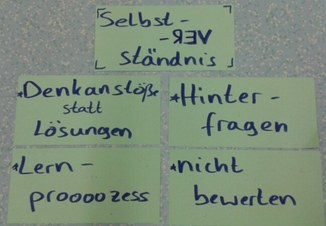 Selbst-
-VER-
ständnis
*Denkanstöße
statt
Lösungen
*Hinter-
fragen
*Lern-
proooozess
*nicht
bewerten